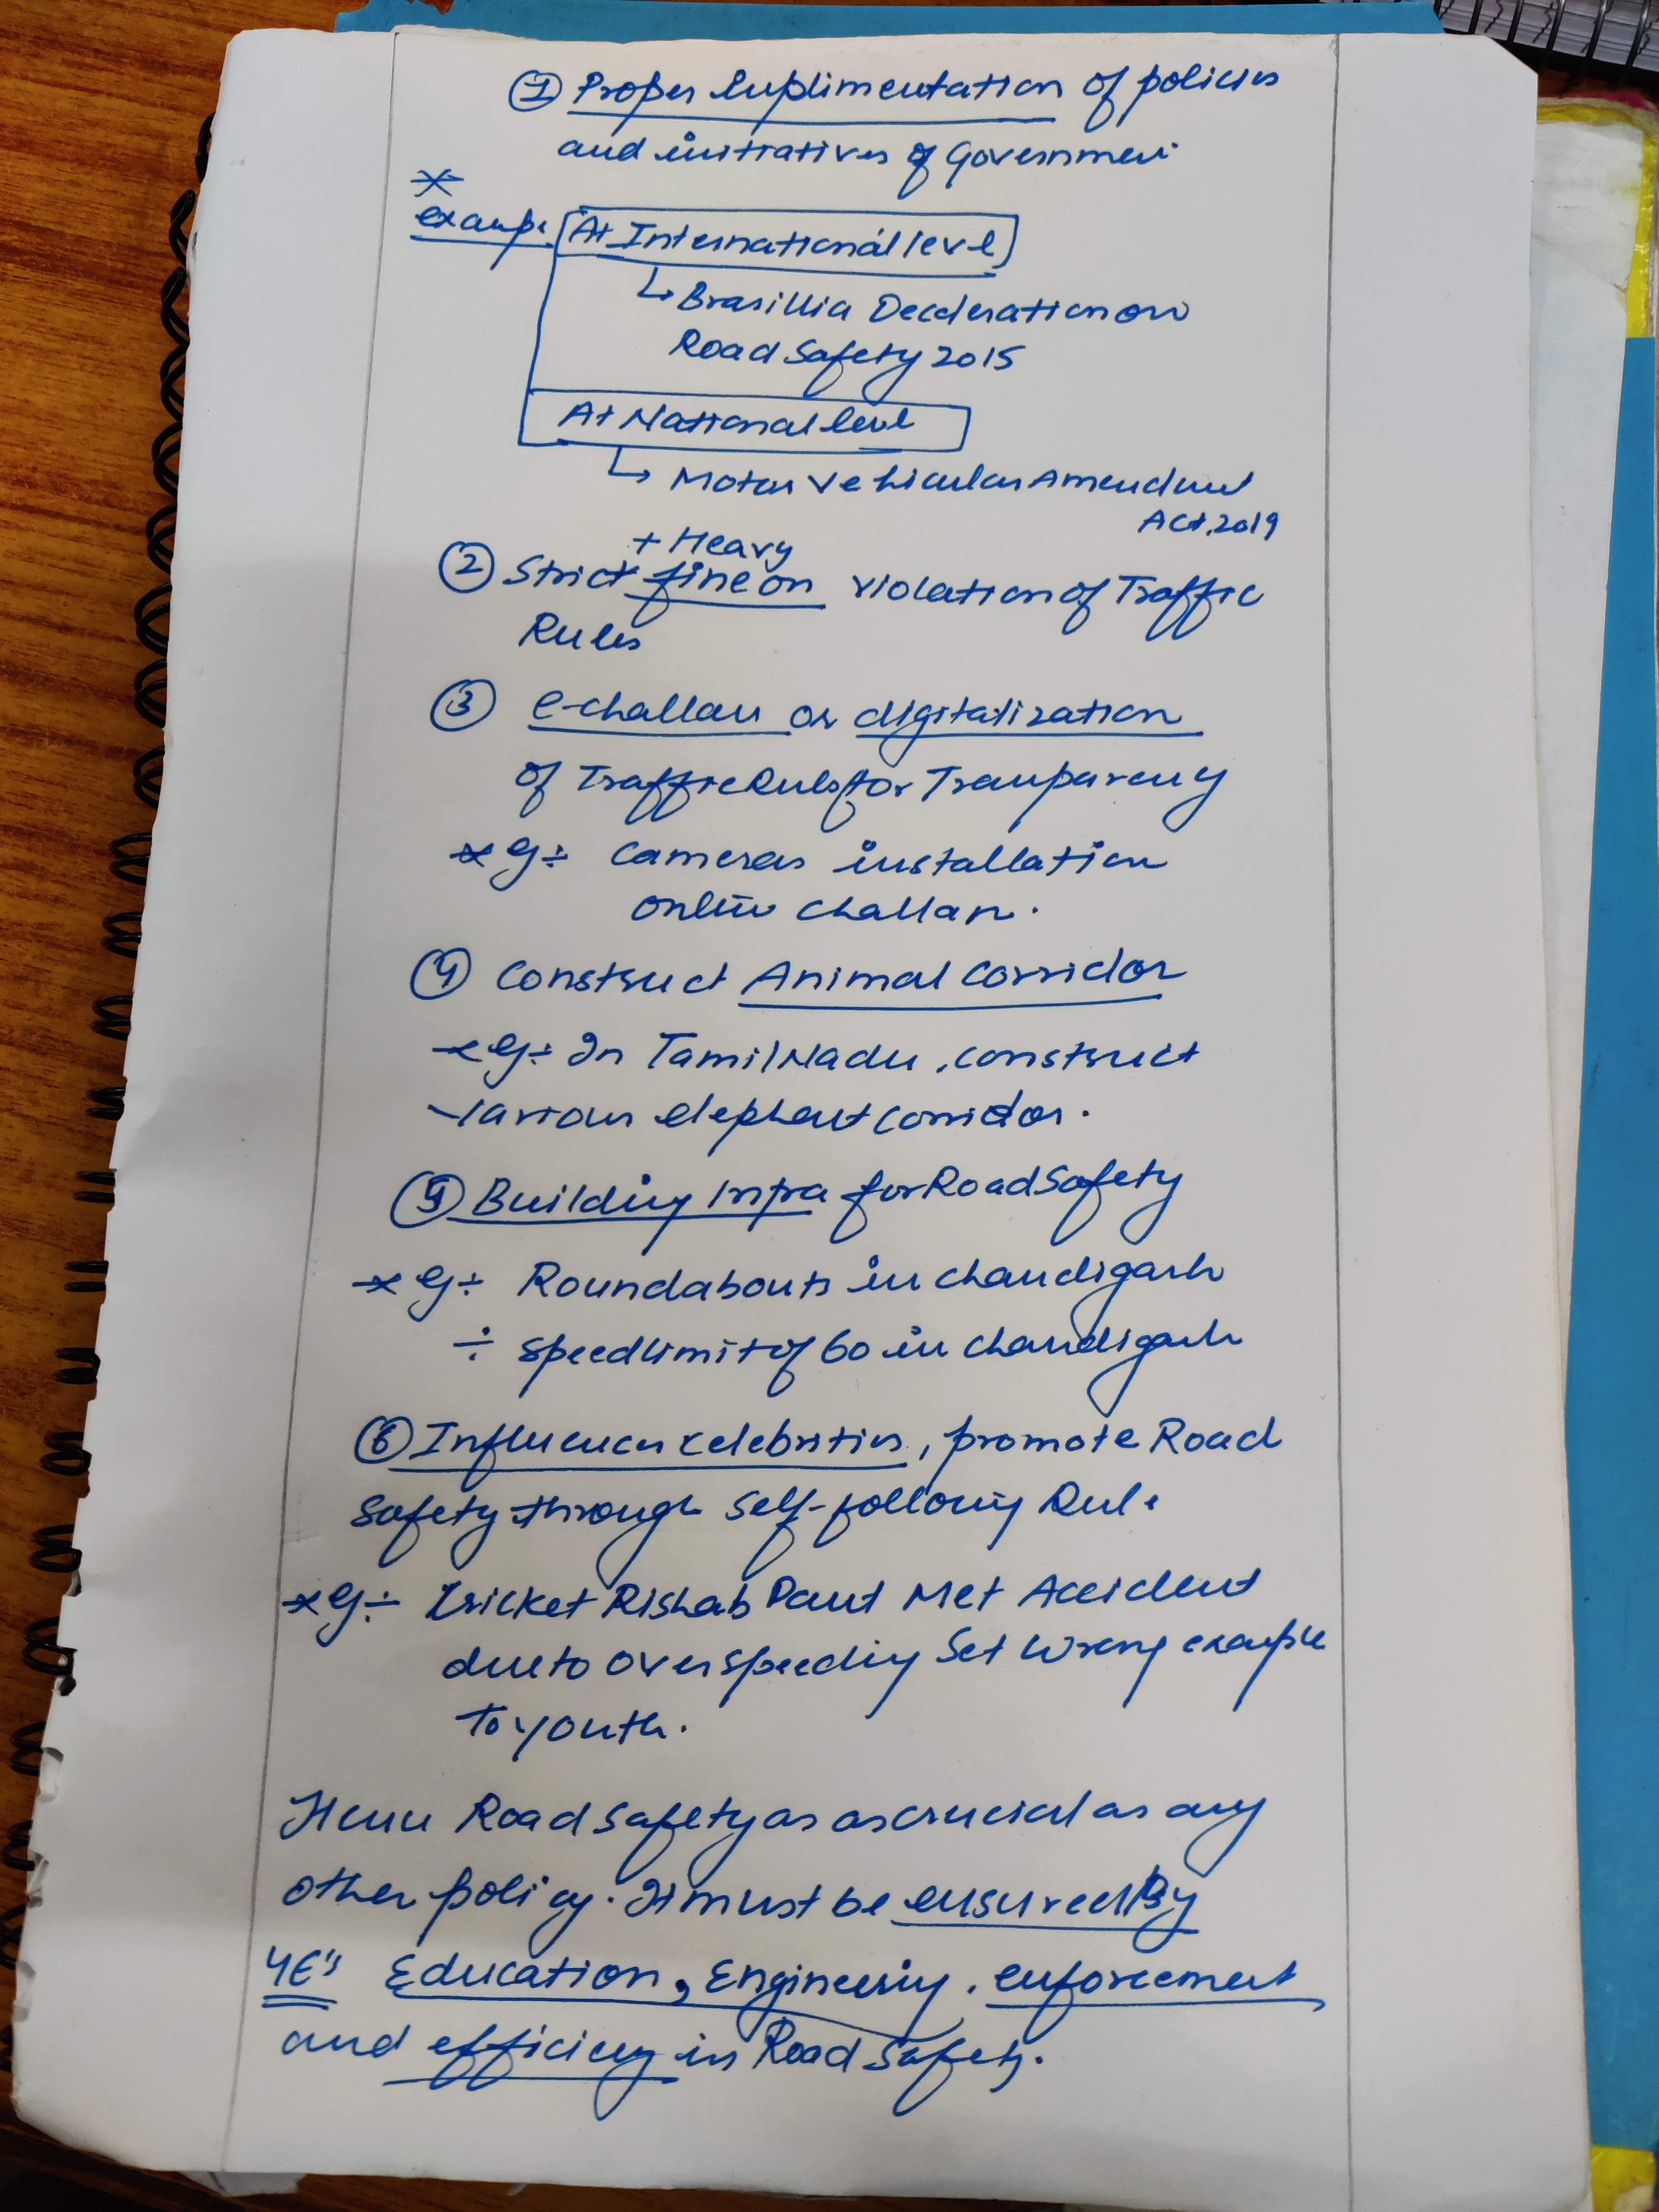 ① Proper Implimentation of policies
and initiatives of Government
example At International level
↳ Brasillia Decleration on
Road Safety 2015
At National level
↳ Motor Vehicular Amendment
Act, 2019
+ Heavy
② Strict fine on violation of Traffic
Rules
③ e-challan or digitalization
of Traffic Rules for Tranparency
eg:- Cameras installation
online challan.
④ Construct Animal Corridor
eg:- In Tamil Nadu, construct
various elephant corridor.
⑤ Building Infra for Road Safety
eg:- Roundabouts in Chandigarh
÷ speed limit of 60 in Chandigarh
⑥ Influencer celebrities, promote Road
Safety through self-following Rule
eg:- Cricket Rishab Pant Met Accident
due to over speeding Set Wrong example
to youth.
Hence Road Safety as as crucial as any
other policy. It must be ensured By
4E's Education, Engineering, enforcement
and efficiency in Road Safety.